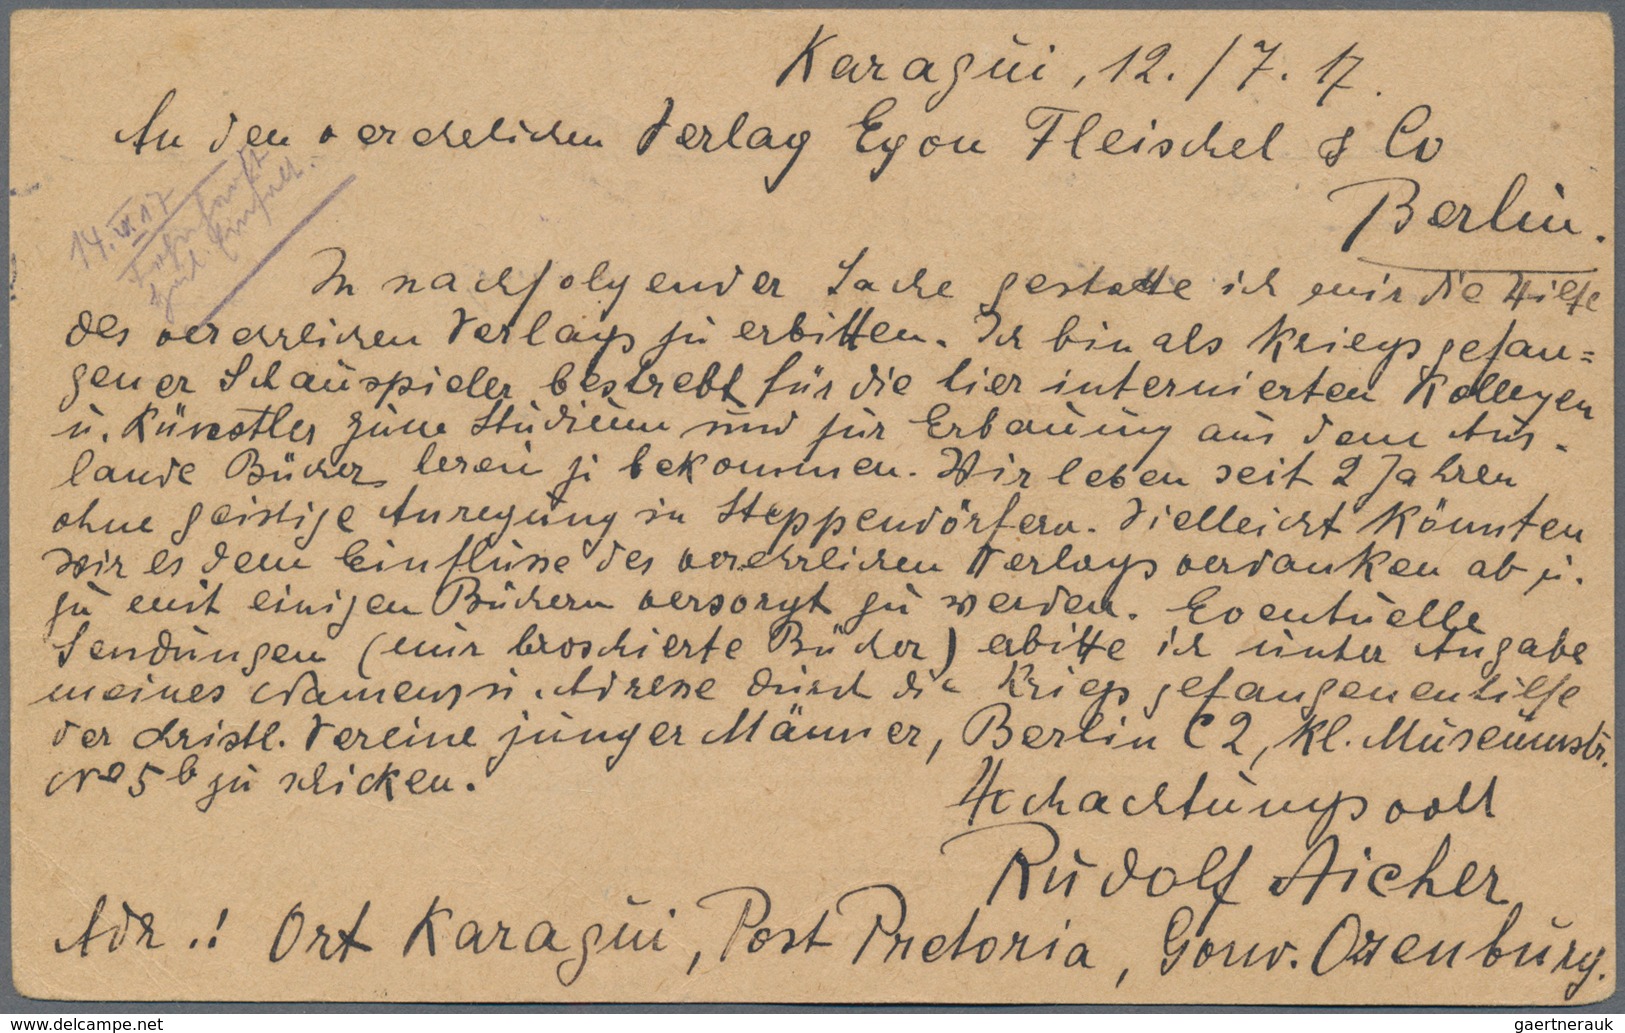 Karagui, 12./7. 17.
An den verehrlichen Verlag Egon Fleischel & Co
Berlin.
14. VI. 17
In nachfolgender Sache gestatte ich mir die Hilfe
des verehrlichen Verlags zu erbitten. Ich bin als kriegsgefan=
gener Schauspieler bestrebt für die hier internierten Kollegen
u. Künstler zum Studium und zur Erbauung aus dem Aus-
lande Bücher herein zu bekommen. Wir leben seit 2 Jahren
ohne geistige Anregung in Steppendörfern. Vielleicht könnten
wir es dem Einflusse des verehrlichen Verlags verdanken ab u.
zu mit einigen Büchern versorgt zu werden. Eventuelle
Sendungen (nur broschierte Bücher) erbitte ich unter Angabe
meines Namens u. Adresse durch die Kriegsgefangenenhilfe
der christl. Vereine junger Männer, Berlin C 2, kl. Museumstr.
No 5b zu schicken.
Hochachtungsvoll
Rudolf Aicher
Adr.: Ort Karagui, Post Pretoria, Gouv. Orenburg.
gaertnerauk
www.delcampe.net